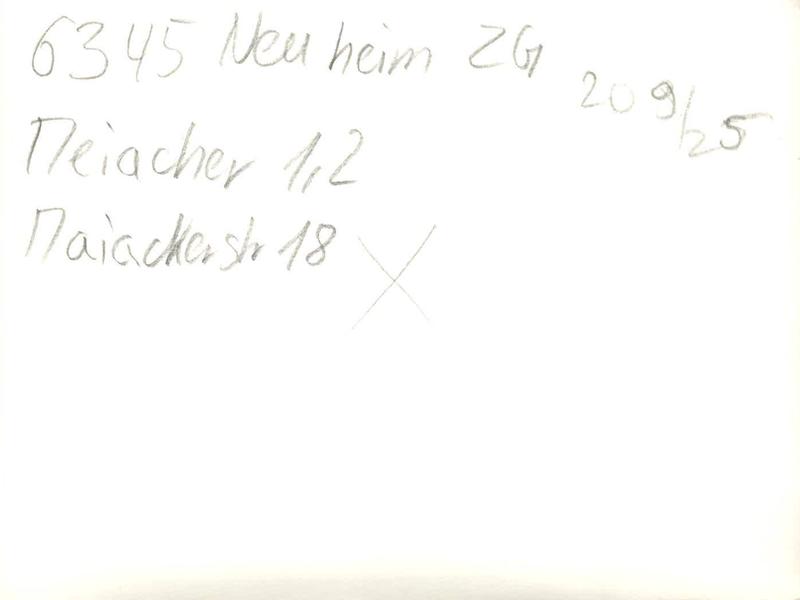 6345 Neuheim ZG
209/25
Meiacher 1,2
Maiackerstr 18